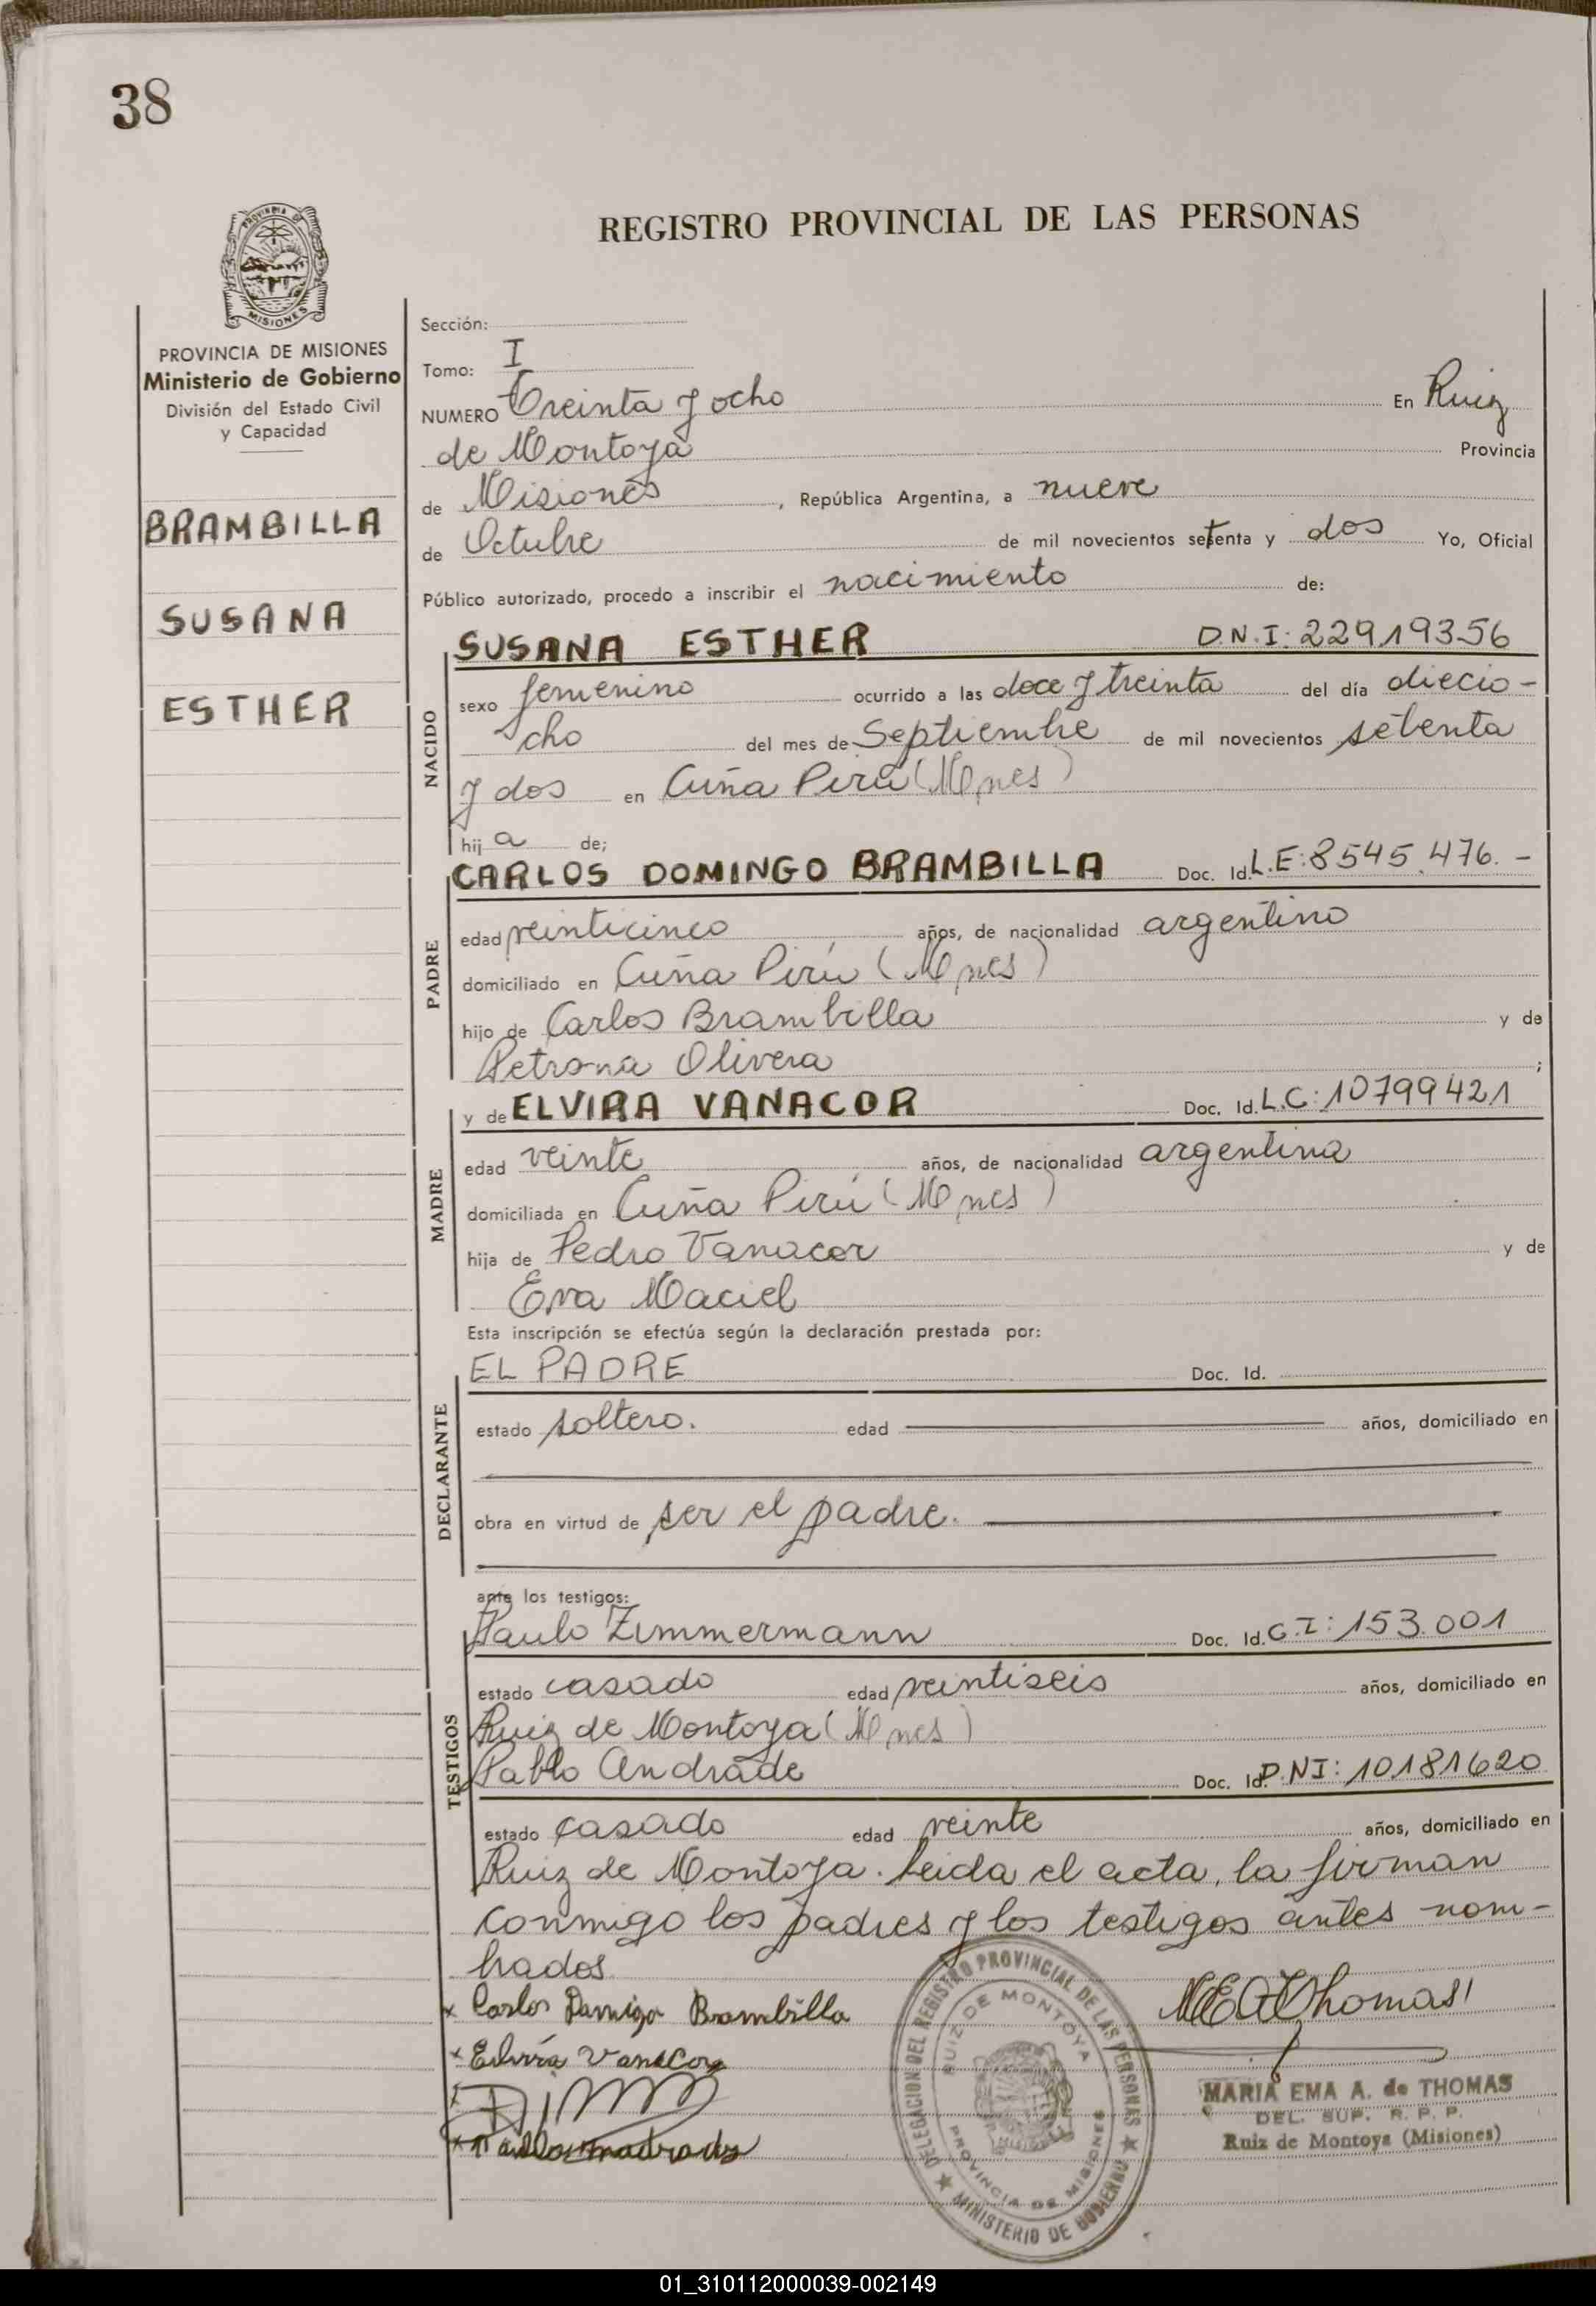 38
REGISTRO PROVINCIAL DE LAS PERSONAS
PROVINCIA DE MISIONES
PROVINCIA DE MISIONES
Ministerio de Gobierno
División del Estado Civil
y Capacidad
BRAMBILLA
SUSANA
ESTHER
Sección:
Tomo: I
NUMERO Treinta y ocho En Ruiz
de Montoya Provincia
de Misiones, República Argentina, a nueve
de Octubre de mil novecientos setenta y dos Yo, Oficial
Público autorizado, procedo a inscribir el nacimiento de:
NACIDO
SUSANA ESTHER D.N.I: 22919356
sexo femenino ocurrido a las doce y treinta del día diecio-
cho del mes de Septiembre de mil novecientos setenta
y dos en Cuña Pirú (Mnes)
hija de;
PADRE
CARLOS DOMINGO BRAMBILLA Doc. Id. L.E: 8545.476. -
edad veinticinco años, de nacionalidad argentino
domiciliado en Cuña Pirú (Mnes)
hijo de Carlos Brambilla y de
Petrona Olivera ;
MADRE
y de ELVIRA VANACOR Doc. Id. L.C: 10799421
edad veinte años, de nacionalidad argentina
domiciliada en Cuña Pirú (Mnes)
hija de Pedro Vanacor y de
Eva Maciel
Esta inscripción se efectúa según la declaración prestada por:
DECLARANTE
EL PADRE Doc. Id.
estado soltero. edad años, domiciliado en
obra en virtud de ser el padre.
ante los testigos:
TESTIGOS
Paulo Zimmermann Doc. Id. C.I: 153.001
estado casado edad veintiseis años, domiciliado en
Ruiz de Montoya (Mnes)
Pablo Andrade Doc. Id. D.NI: 10181620
estado casado edad veinte años, domiciliado en
Ruiz de Montoya. Leida el acta, la firman
conmigo los padres y los testigos antes nom-
brados
x Carlos Domigo Brambilla
x Elvira Vanacor
MEAThomas
DELEGACION DEL REGISTRO PROVINCIAL DE LAS PERSONAS
RUIZ DE MONTOYA
PROVINCIA DE MISIONES
MINISTERIO DE GOBIERNO
MARIA EMA A. de THOMAS
DEL. SUP. R. P. P.
Ruiz de Montoya (Misiones)
01_310112000039-002149